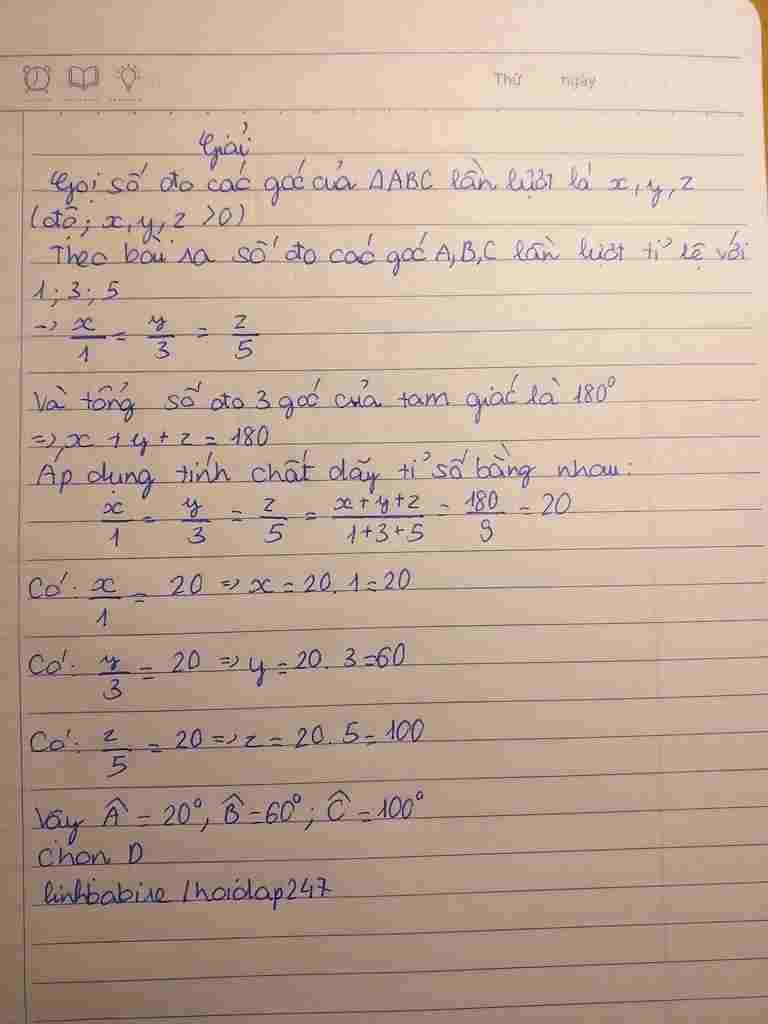 Thứ ngày
Giải
Gọi số đo các góc của ΔABC lần lượt là x, y, z
(độ; x, y, z >0)
Theo bài ra số đo các góc A, B, C lần lượt tỉ lệ với
1; 3; 5
=> x/1 = y/3 = z/5
Và tổng số đo 3 góc của tam giác là 180°
=> x + y + z = 180
Áp dụng tính chất dãy tỉ số bằng nhau:
x/1 = y/3 = z/5 = x+y+z/1+3+5 = 180/9 = 20
Có: x/1 = 20 => x = 20. 1 = 20
Có: y/3 = 20 => y = 20. 3 = 60
Có: z/5 = 20 => z = 20. 5 = 100
Vậy Â = 20°, B̂ = 60°; Ĉ = 100°
Chọn D
linhbabie /hoidap247